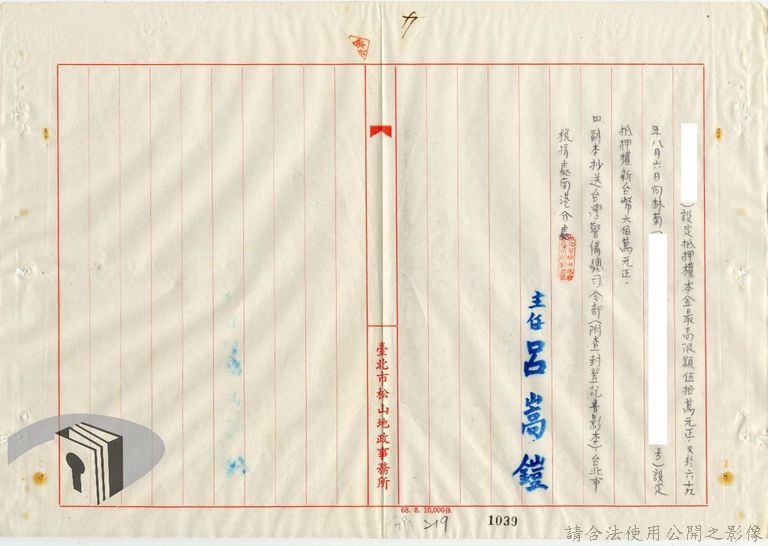 ）設定抵押權本金最高限額伍拾萬元正，又於六十九
年八月六日向林菊（
號）設定
抵押權新台幣六佰萬元正。
四、副本抄送台灣警備總司令部（附查封登記書影本）、台北市
稅捐處南港分處
主任 呂嵩鎧
臺北市松山地政事務所
68. 8. 10,000張
219
1039
請合法使用公開之影像